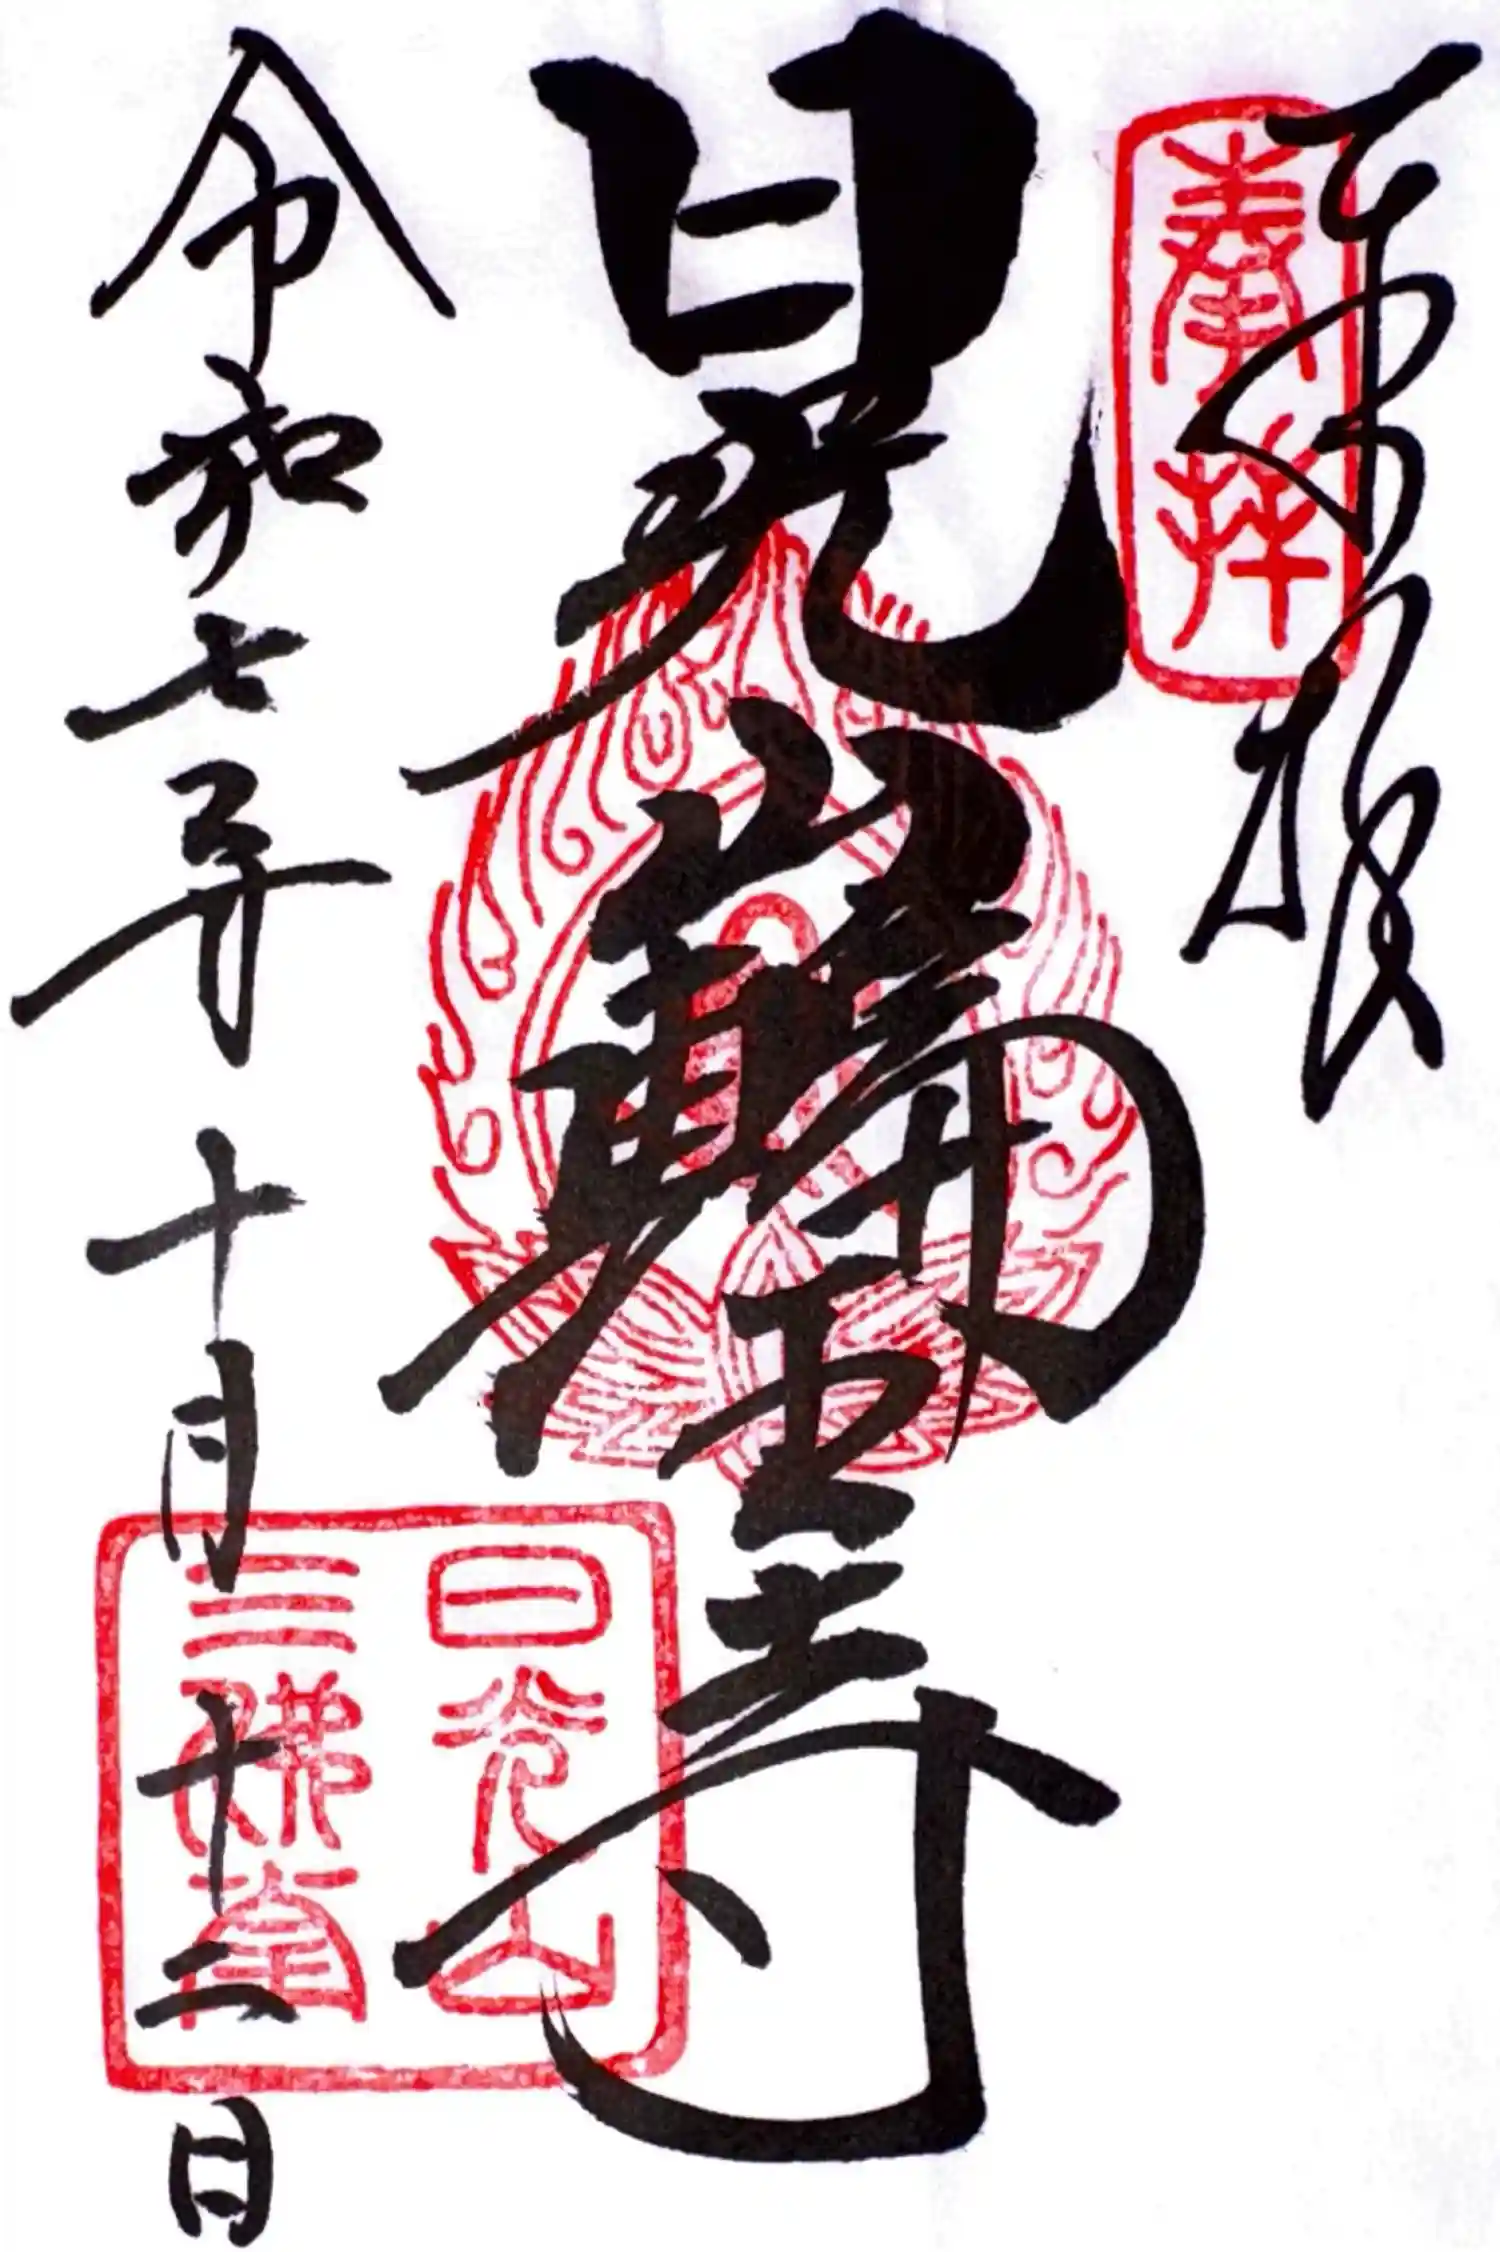 奉拝
日光山輪王寺
日光山
三佛堂
令和七年十月十二日